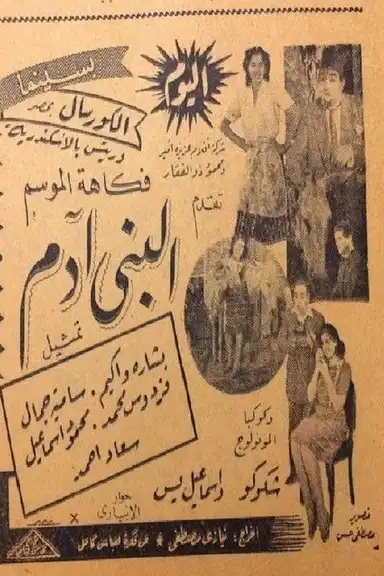 اليوم
بسينما
الكورسال بمصر
وريتس بالإسكندرية
شركة أفلام عزيزة أمير
ومحمود ذو الفقار
تقدم
فكاهة الموسم
البنى آدم
تمثيل
بشاره واكيم . سامية جمال
فردوس محمد . محمود اسماعيل
سعاد احمد
وكوكبا
المونولوج
شكوكو واسماعيل يس
حوار
الأبيارى
تصوير
مصطفى حسن
اخراج : نيازى مصطفى * عن قصة لعباس كامل